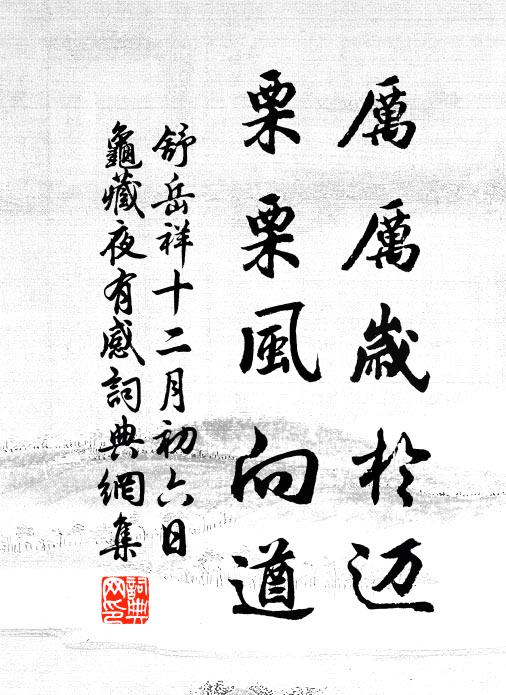 厲厲歲於迈
栗栗風向遒
舒岳祥十二月初六日
龜藏夜有感詞典網集
詞典网印